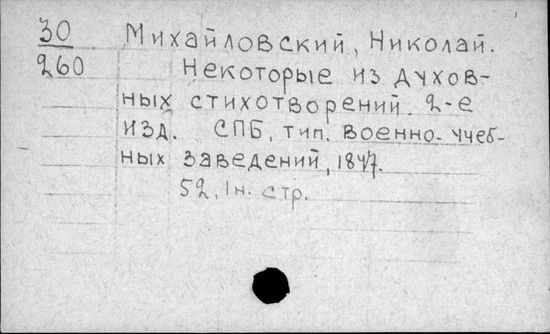 30 Михайловский, Николай.
260 Некоторые из духов-
ных стихотворений. 2-е
изд. СПБ, тип. военно-учеб-
ных заведений, 1847.
52, 1н. стр.